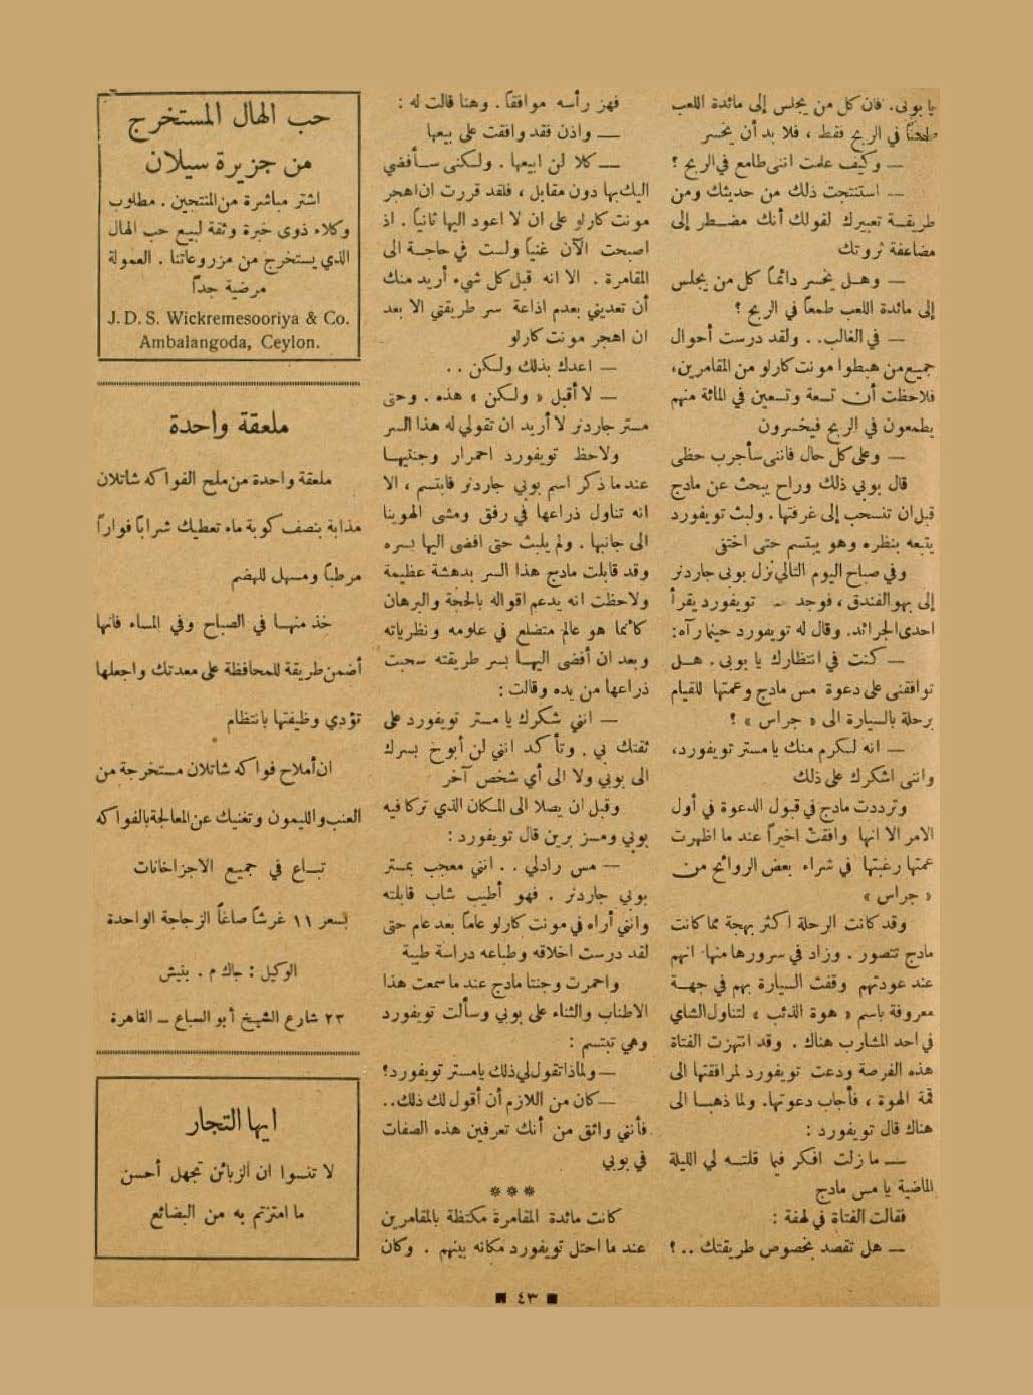 يا بوبى. فان كل من يجلس إلى مائدة اللعب
طمعاً في الربح فقط ، فلا بد أن يخسر
— وكيف علمت اننى طامع في الربح ؟
— استنتجت ذلك من حديثك ومن
طريقة تعبيرك لقولك أنك مضطر إلى
مضاعفة ثروتك
— وهل يخسر دائماً كل من يجلس
إلى مائدة اللعب طمعاً في الربح ؟
— في الغالب.. ولقد درست أحوال
جميع من هبطوا مونت كارلو من المقامرين،
فلاحظت أن تسعة وتسعين في المائة منهم
يطمعون في الربح فيخسرون
— وعلى كل حال فاننى سأجرب حظى
قال بوبي ذلك وراح يبحث عن مادج
قبل ان تنسحب إلى غرفتها. ولبث تويفورد
يتبعه بنظره وهو يبتسم حتى اختفى
وفي صباح اليوم التالي نزل بوبى جاردنر
إلى بهو الفندق ، فوجد تويفورد يقرأ
احدى الجرائد. وقال له تويفورد حينما رآه:
— كنت في انتظارك يا بوبى. هل
توافقنى على دعوة مس مادج وعمتها للقيام
برحلة بالسيارة الى « جراس » ؟
— انه لكرم منك يا مستر تويفورد،
واننى اشكرك على ذلك
وترددت مادج في قبول الدعوة في أول
الامر الا انها وافقت اخيراً عند ما اظهرت
عمتها رغبتها في شراء بعض الروائح من
« جراس »
وقد كانت الرحلة اكثر بهجة مما كانت
مادج تتصور . وزاد في سرورها منها انهم
عند عودتهم وقفت السيارة بهم في جهة
معروفة باسم « هوة الذئب » لتناول الشاي
في احد المشارب هناك . وقد انتهزت الفتاة
هذه الفرصة ودعت تويفورد لمرافقتها الى
قمة الهوة ، فأجاب دعوتها. ولما ذهبا الى
هناك قال تويفورد :
— ما زلت افكر فيما قلته لي الليلة
الماضية يا مس مادج
فقالت الفتاة في لهفة :
— هل تقصد بخصوص طريقتك .. ؟
فهز رأسه موافقاً . وهنا قالت له :
— واذن فقد وافقت على بيعها
— كلا لن ابيعها. ولكنى سأفضي
اليك بها دون مقابل ، فلقد قررت ان اهجر
مونت كارلو على ان لا اعود اليها ثانياً . اذ
اصبحت الآن غنياً ولست في حاجة الى
المقامرة . الا انه قبل كل شيء أريد منك
أن تعديني بعدم اذاعة سر طريقتي الا بعد
ان اهجر مونت كارلو
— اعدك بذلك ولكن . .
— لا أقبل « ولكن » هذه . وحتى
مستر جاردنر لا أريد ان تقولي له هذا السر
ولاحظ تويفورد احمرار وجنتيها
عند ما ذكر اسم بوبي جاردنر فابتسم ، الا
انه تناول ذراعها في رفق ومشى الهوينا
الى جانبها . ولم يلبث حتى افضى اليها بسره
وقد قابلت مادج هذا السر بدهشة عظيمة
ولاحظت انه يدعم اقواله بالحجة والبرهان
كأنما هو عالم متضلع في علومه ونظرياته
وبعد ان أفضى اليها بسر طريقته سحبت
ذراعها من يده وقالت :
— انني شكرك يا مستر تويفورد على
ثقتك بي . وتأكد انني لن أبوح بسرك
الى بوبي ولا الى أي شخص آخر
وقبل ان يصلا الى المكان الذي تركا فيه
بوبي ومسز برين قال تويفورد :
— مس رادلي . . انني معجب بمستر
بوبي جاردنر . فهو أطيب شاب قابلته
وانني أراه في مونت كارلو عاماً بعد عام حتى
لقد درست اخلاقه وطباعه دراسة طيبة
واحمرت وجنتا مادج عند ما سمعت هذا
الاطناب والثناء على بوبي وسألت تويفورد
وهي تبتسم :
— ولماذا تقول لي ذلك يا مستر تويفورد؟
— كان من اللازم أن أقول لك ذلك..
فأنني واثق من أنك تعرفين هذه الصفات
في بوبي
***
كانت مائدة المقامرة مكتظة بالمقامرين
عند ما احتل تويفورد مكانه بينهم . وكان
حب الهال المستخرج
من جزيرة سيلان
اشتر مباشرة من المنتجين . مطلوب
وكلاء ذوى خبرة وثقة لبيع حب الهال
الذي يستخرج من مزروعاتنا . العمولة
مرضية جداً
J. D. S. Wickremesooriya & Co.
Ambalangoda, Ceylon.
ملعقة واحدة
ملعقة واحدة من ملح الفواكه شاتلان
مذابة بنصف كوبة ماء تعطيك شراباً فواراً
مرطباً ومسهل للهضم
خذ منها في الصباح وفي المساء فانها
أضمن طريقة للمحافظة على معدتك واجعلها
تؤدي وظيفتها بانتظام
ان أملاح فواكه شاتلان مستخرجة من
العنب والليمون وتغنيك عن المعالجة بالفواكه
تباع في جميع الاجزاخانات
بسعر ١١ غرشاً صاغاً الزجاجة الواحدة
الوكيل : جاك م . بنيش
٢٣ شارع الشيخ أبو السباع — القاهرة
ايها التجار
لا تنسوا ان الزبائن تجهل أحسن
ما امتزتم به من البضائع
■ ٤٣ ■